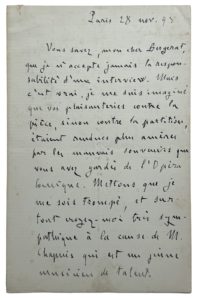 Paris 28 nov. 95
Vous savez, mon cher Bergerat,
que je n'accepte jamais la respon-
sabilité d'une interview. Mais
c'est vrai, je me suis imaginé
que vos plaisanteries contre la
pièce, sinon contre la partition,
étaient rendues plus amères
par les mauvais souvenirs que
vous avez gardés de l'Opéra
Comique. Mettons que je
me sois trompé, et sur-
tout croyez-moi très sym-
pathique à la cause de M.
qui est un jeune
musicien de talent.